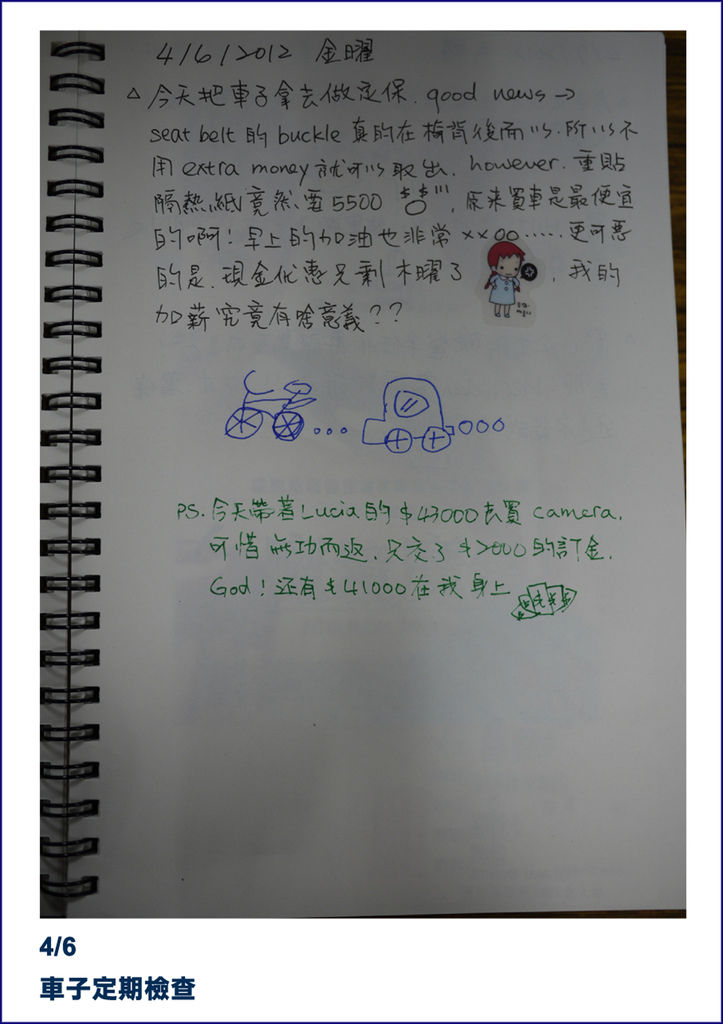 4/6/2012 金曜
△ 今天把車子拿去做定保. good news →
seat belt 的 buckle 真的在椅背後面, 所以不
用 extra money 就可以取出. however. 重貼
隔熱紙竟然要5500 . 原來買車是最便宜
的啊! 早上的加油也非常 xxoo ...... 更可惡
的是. 現金優惠只剩木曜了 . 我的
加薪究竟有啥意義??
PS. 今天帶著Lucia的$43000去買 camera.
可惜無功而返. 只交了$2000的訂金.
God! 还有$41000在我身上
4/6
車子定期檢查